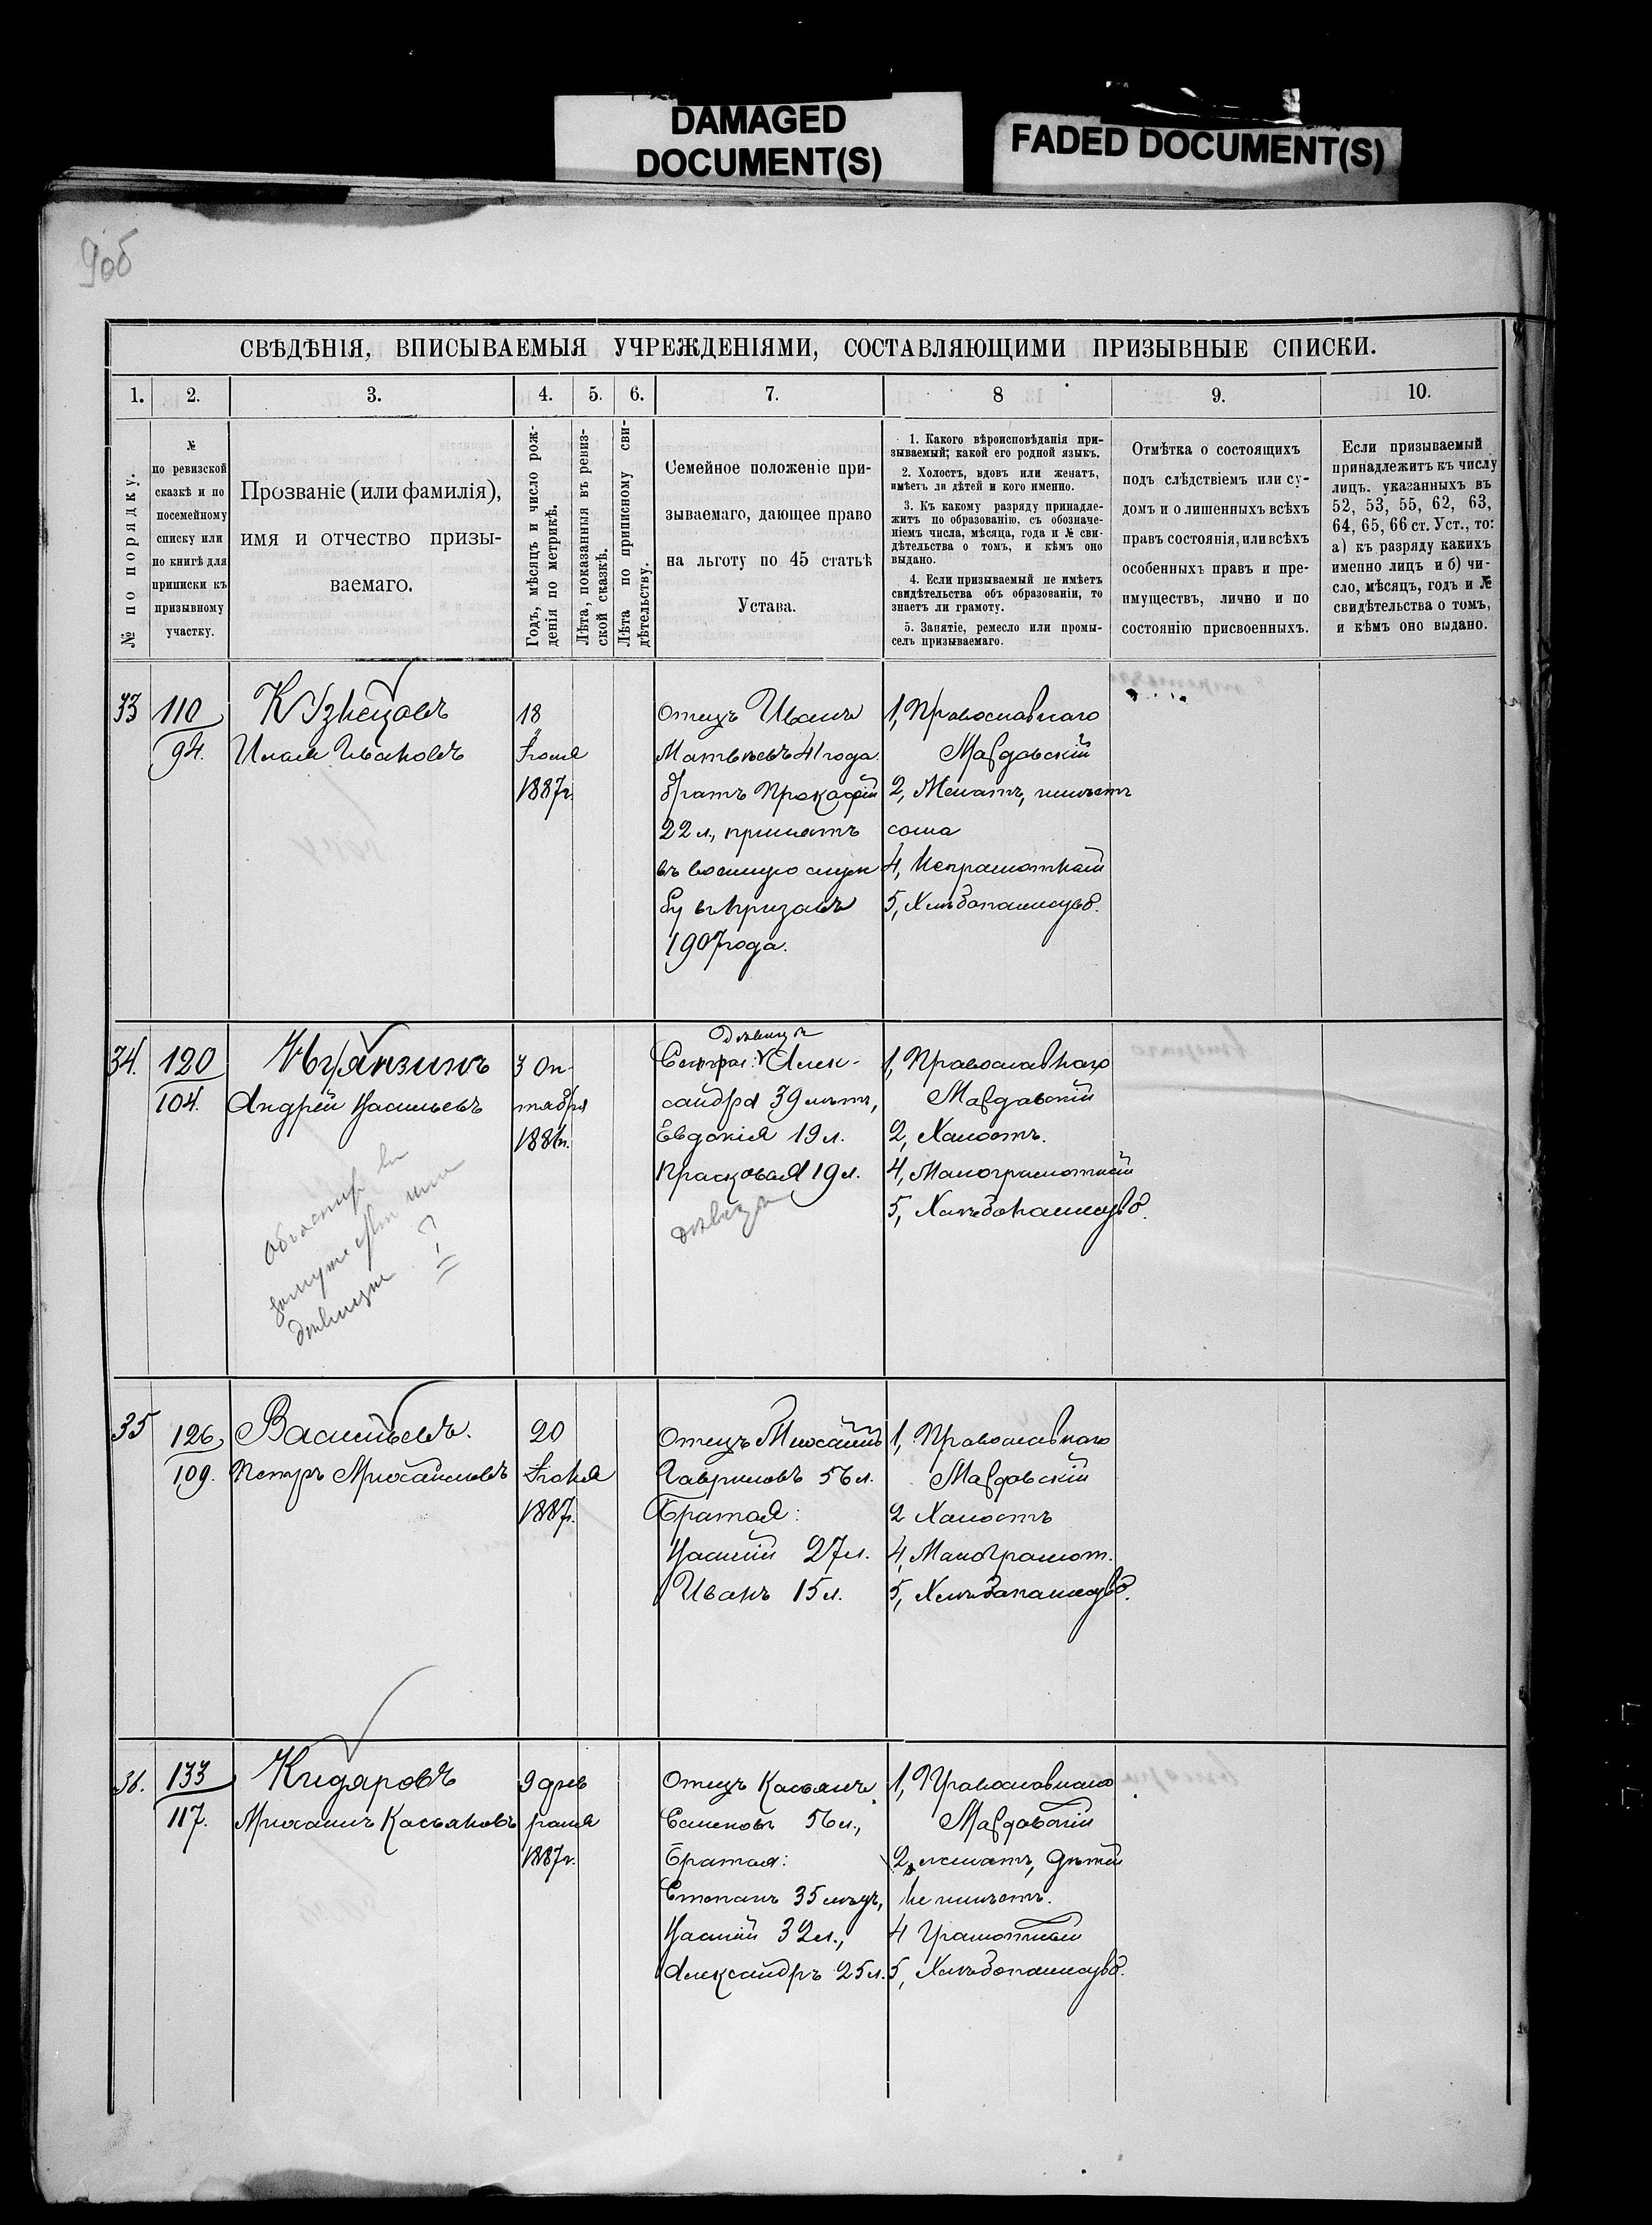 DAMAGED
DOCUMENT(S)
FADED DOCUMENT(S)
90б
СВѢДѢНІЯ, ВПИСЫВАЕМЫЯ УЧРЕЖДЕНІЯМИ, СОСТАВЛЯЮЩИМИ ПРИЗЫВНЫЕ СПИСКИ.
1. 2. 3. 4. 5. 6. 7. 8 9. 10.
№ по порядку.
№
по ревизской
сказкѣ и по
посемейному
списку или
по книгѣ для
приписки къ
призывному
участку.
Прозваніе (или фамилія),
имя и отчество призы-
ваемаго.
Годъ, мѣсяцъ и число рож-
денія по метрикѣ.
Лѣта, показанныя въ ревиз-
ской сказкѣ.
Лѣта по приписному сви-
дѣтельству.
Семейное положеніе при-
зываемаго, дающее право
на льготу по 45 статьѣ
Устава.
1. Какого вѣроисповѣданія при-
зываемый; какой его родной языкъ.
2. Холостъ, вдовъ или женатъ,
имѣетъ ли дѣтей и кого именно.
3. Къ какому разряду принадле-
житъ по образованію, съ обозначе-
ніемъ числа, мѣсяца, года и № сви-
дѣтельства о томъ, и кѣмъ оно
выдано.
4. Если призываемый не имѣетъ
свидѣтельства объ образованіи, то
знаетъ ли грамоту.
5. Занятіе, ремесло или промы-
селъ призываемаго.
Отмѣтка о состоящихъ
подъ слѣдствіемъ или су-
домъ и о лишенныхъ всѣхъ
правъ состоянія, или всѣхъ
особенныхъ правъ и пре-
имуществъ, лично и по
состоянію присвоенныхъ.
Если призываемый
принадлежитъ къ числу
лицъ. указанныхъ въ
52, 53, 55, 62, 63,
64, 65, 66 ст. Уст., то:
а) къ разряду какихъ
именно лицъ и б) чи-
сло, мѣсяцъ, годъ и №
свидѣтельства о томъ,
и кѣмъ оно выдано.
33
110
94.
Кузнецовъ
Ивановъ
18
Іюня
1887г.
Отецъ Иванъ
Матвѣевъ 41 года.
братъ Прокофій
22 л., принятъ
въ военную служ
бу въ призывъ
1907 года.
1, Православнаго
Мордовскій
2, Женатъ, имѣетъ
сына
4, Неграмотный
5, Хлѣбопашецъ
34.
120
104.
Андрей Васильевъ
3 Ок-
тября
Дѣвица
Сестры: Алек-
сандра 39 лѣтъ,
Евдокія 19 л.
Прасковья 19 л.
дѣвица
1, Православнаго
Мордовскій
2, Холостъ.
4, Малограмотный
5, Хлѣбопашецъ
замужество или
дѣвицы ?
35
126
109.
Васильевъ.
Петръ Михайловъ
20
Іюня
1887г.
Отецъ Михаилъ
Гавриловъ 56 л.
Братья:
Василій 27 л.
Иванъ 15 л.
1, Православнаго
Мордовскій
2 Холостъ
4, Малограмот.
5, Хлѣбопашецъ
36.
133
117.
Кидяровъ
Михаилъ Касьяновъ
9 фев
раля
1887г.
Отецъ Касьянъ
Семеновъ 56 л.,
Братья:
Степанъ 35 лѣтъ,
Василій 32 л.,
Александръ 25 л.
1, Православнаго
Мордовскій
2, женатъ, дѣтей
не имѣетъ.
4 Грамотный
5, Хлѣбопашецъ